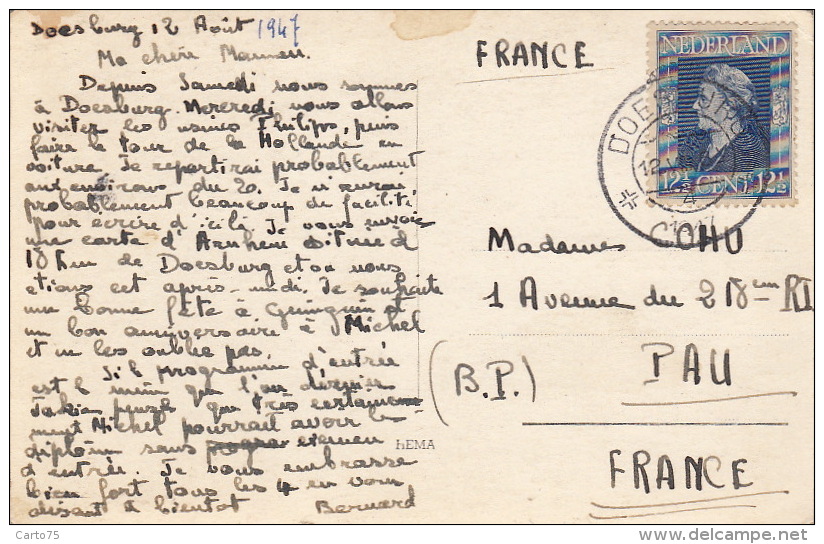 Doesburg 12 Août 1947
Ma chère Maman.
Depuis Samedi nous sommes
à Doesburg. Mercredi nous allons
visiter les usines Philips, puis
faire le tour de la Hollande en
voiture. Je repartirai probablement
aux environs du 20. Je n'aurai
probablement beaucoup de facilité
pour écrire d'ici là. Je vous envoie
une carte d'Arnhem située à
18 Km de Doesburg et où nous
etions cet après-midi. Je souhaite
une bonne fête à et
un bon anniversaire à Michel
et ne les oublie pas.
Si le programme d'entrée
est le même que l'an dernier
que très certaine-
ment Michel pourrait avoir le
diplôme sans examen
d'entrée. Je vous embrasse
bien fort tous les 4 en vous
disant à bientot Bernard
HEMA
FRANCE
NEDERLAND
12½ CENT 12½
DOESBURG
12
1947
Madame COHU
1 Avenue du 218em RI
(B.P.) PAU
FRANCE
Carto75
delcampe.net